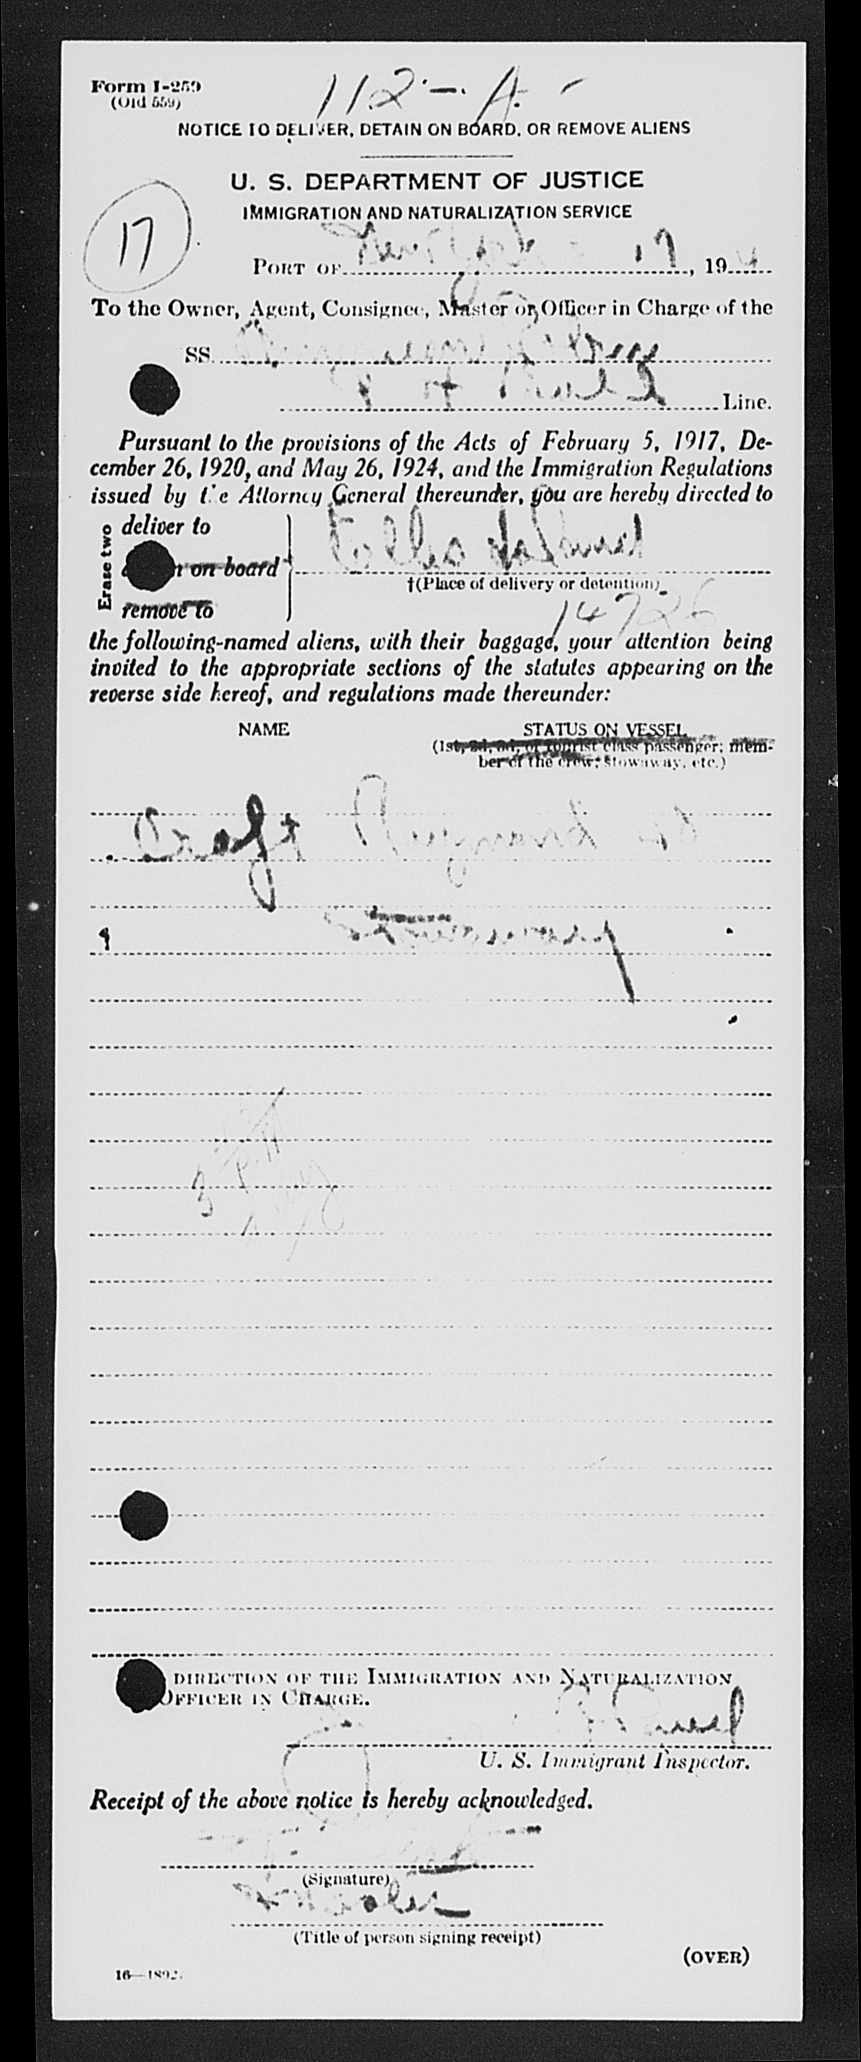 Form I-259
(Old 559)
112-A-
NOTICE TO DELIVER, DETAIN ON BOARD, OR REMOVE ALIENS
U. S. DEPARTMENT OF JUSTICE
IMMIGRATION AND NATURALIZATION SERVICE
17
PORT OF New York 19, 194
To the Owner, Agent, Consignee, Master or Officer in Charge of the
SS.
Line.
Pursuant to the provisions of the Acts of February 5, 1917, De-
cember 26, 1920, and May 26, 1924, and the Immigration Regulations
issued by the Attorney General thereunder, you are hereby directed to
Erase two
deliver to
on board
remove to
Ellis Island
†(Place of delivery or detention)
14726
the following-named aliens, with their baggage, your attention being
invited to the appropriate sections of the statutes appearing on the
reverse side hereof, and regulations made thereunder:
NAME STATUS ON VESSEL
(1st, 2d, 3d, or tourist class passenger; mem-
ber of the crew; stowaway, etc.)
Craft Raymond
Stowaway
3 P.M
DIRECTION OF THE IMMIGRATION AND NATURALIZATION
OFFICER IN CHARGE.
U. S. Immigrant Inspector.
Receipt of the above notice is hereby acknowledged.
(Signature)
(Title of person signing receipt)
(OVER)